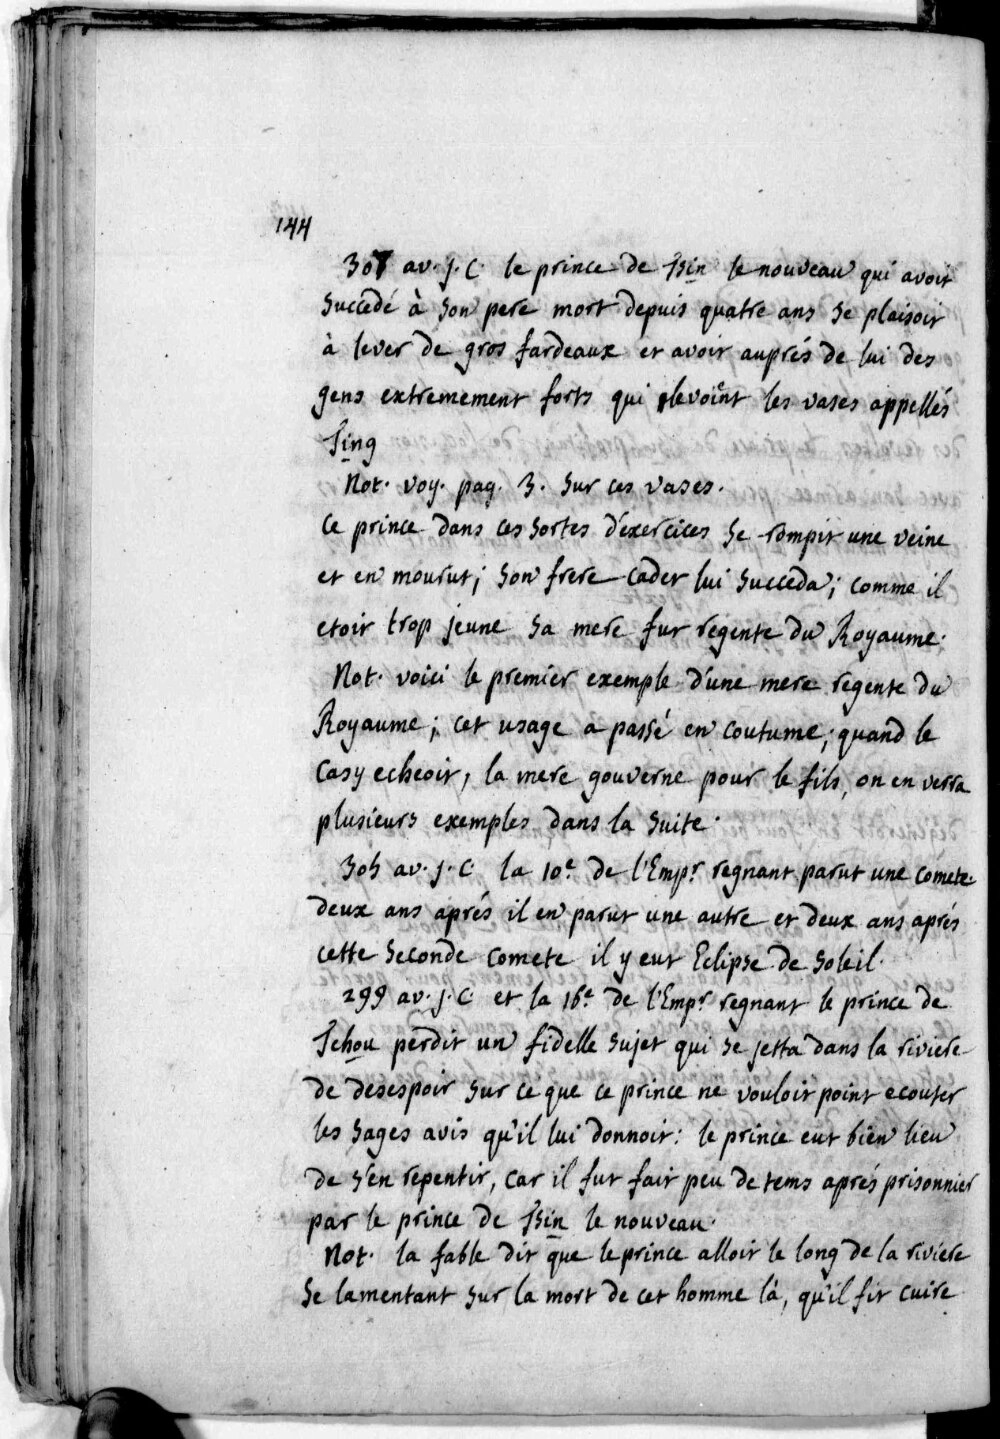 144
307 av. J. C. le prince de Tsin le nouveau qui avoit
succedé à son pere mort depuis quatre ans se plaisoit
à lever de gros fardeaux et avoir auprés de lui des
gens extremement forts qui levoint les vases appellés
Ting
Not. voy. pag. 3. sur ces vases.
Ce prince dans ces sortes d'exercices se rompit une veine
et en mourut; son frere cadet lui succeda; comme il
etoit trop jeune sa mere fut regente du Royaume.
Not. voici le premier exemple d'une mere regente du
Royaume; cet usage a passé en coutume; quand le
cas y echeoit, la mere gouverne pour le fils, on en verra
plusieurs exemples dans la suite.
305 av. J. C. la 10e. de l'Empr. regnant parut une comete.
deux ans aprés il en parut une autre et deux ans aprés
cette seconde comete il y eut Eclipse de soleil.
299 av. J. C. et la 16e. de l'Empr. regnant le prince de
Tchou perdit un fidelle sujet qui se jetta dans la riviere
de desespoir sur ce que ce prince ne vouloit point ecouter
les sages avis qu'il lui donnoit: le prince eut bien lieu
de s'en repentir, car il fut fait peu de tems aprés prisonnier
par le prince de Tsin le nouveau.
Not. la fable dit que le prince alloit le long de la riviere
se lamentant sur la mort de cet homme là, qu'il fit cuire